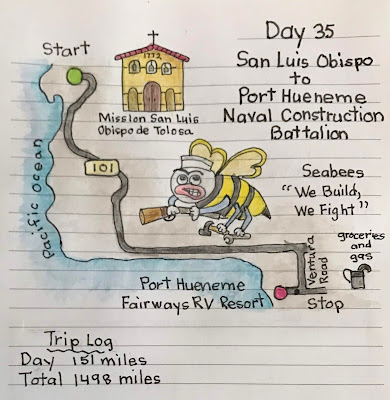 Day 35
San Luis Obispo
to
Port Hueneme
Naval Construction
Battalion
Start
1772
Mission San Luis
Obispo de Tolosa
101
Pacific Ocean
Seabees
"We Build,
We Fight"
groceries
and
gas
Ventura
Road
Port Hueneme
Fairways RV Resort
Stop
Trip Log
Day 151 miles
Total 1498 miles